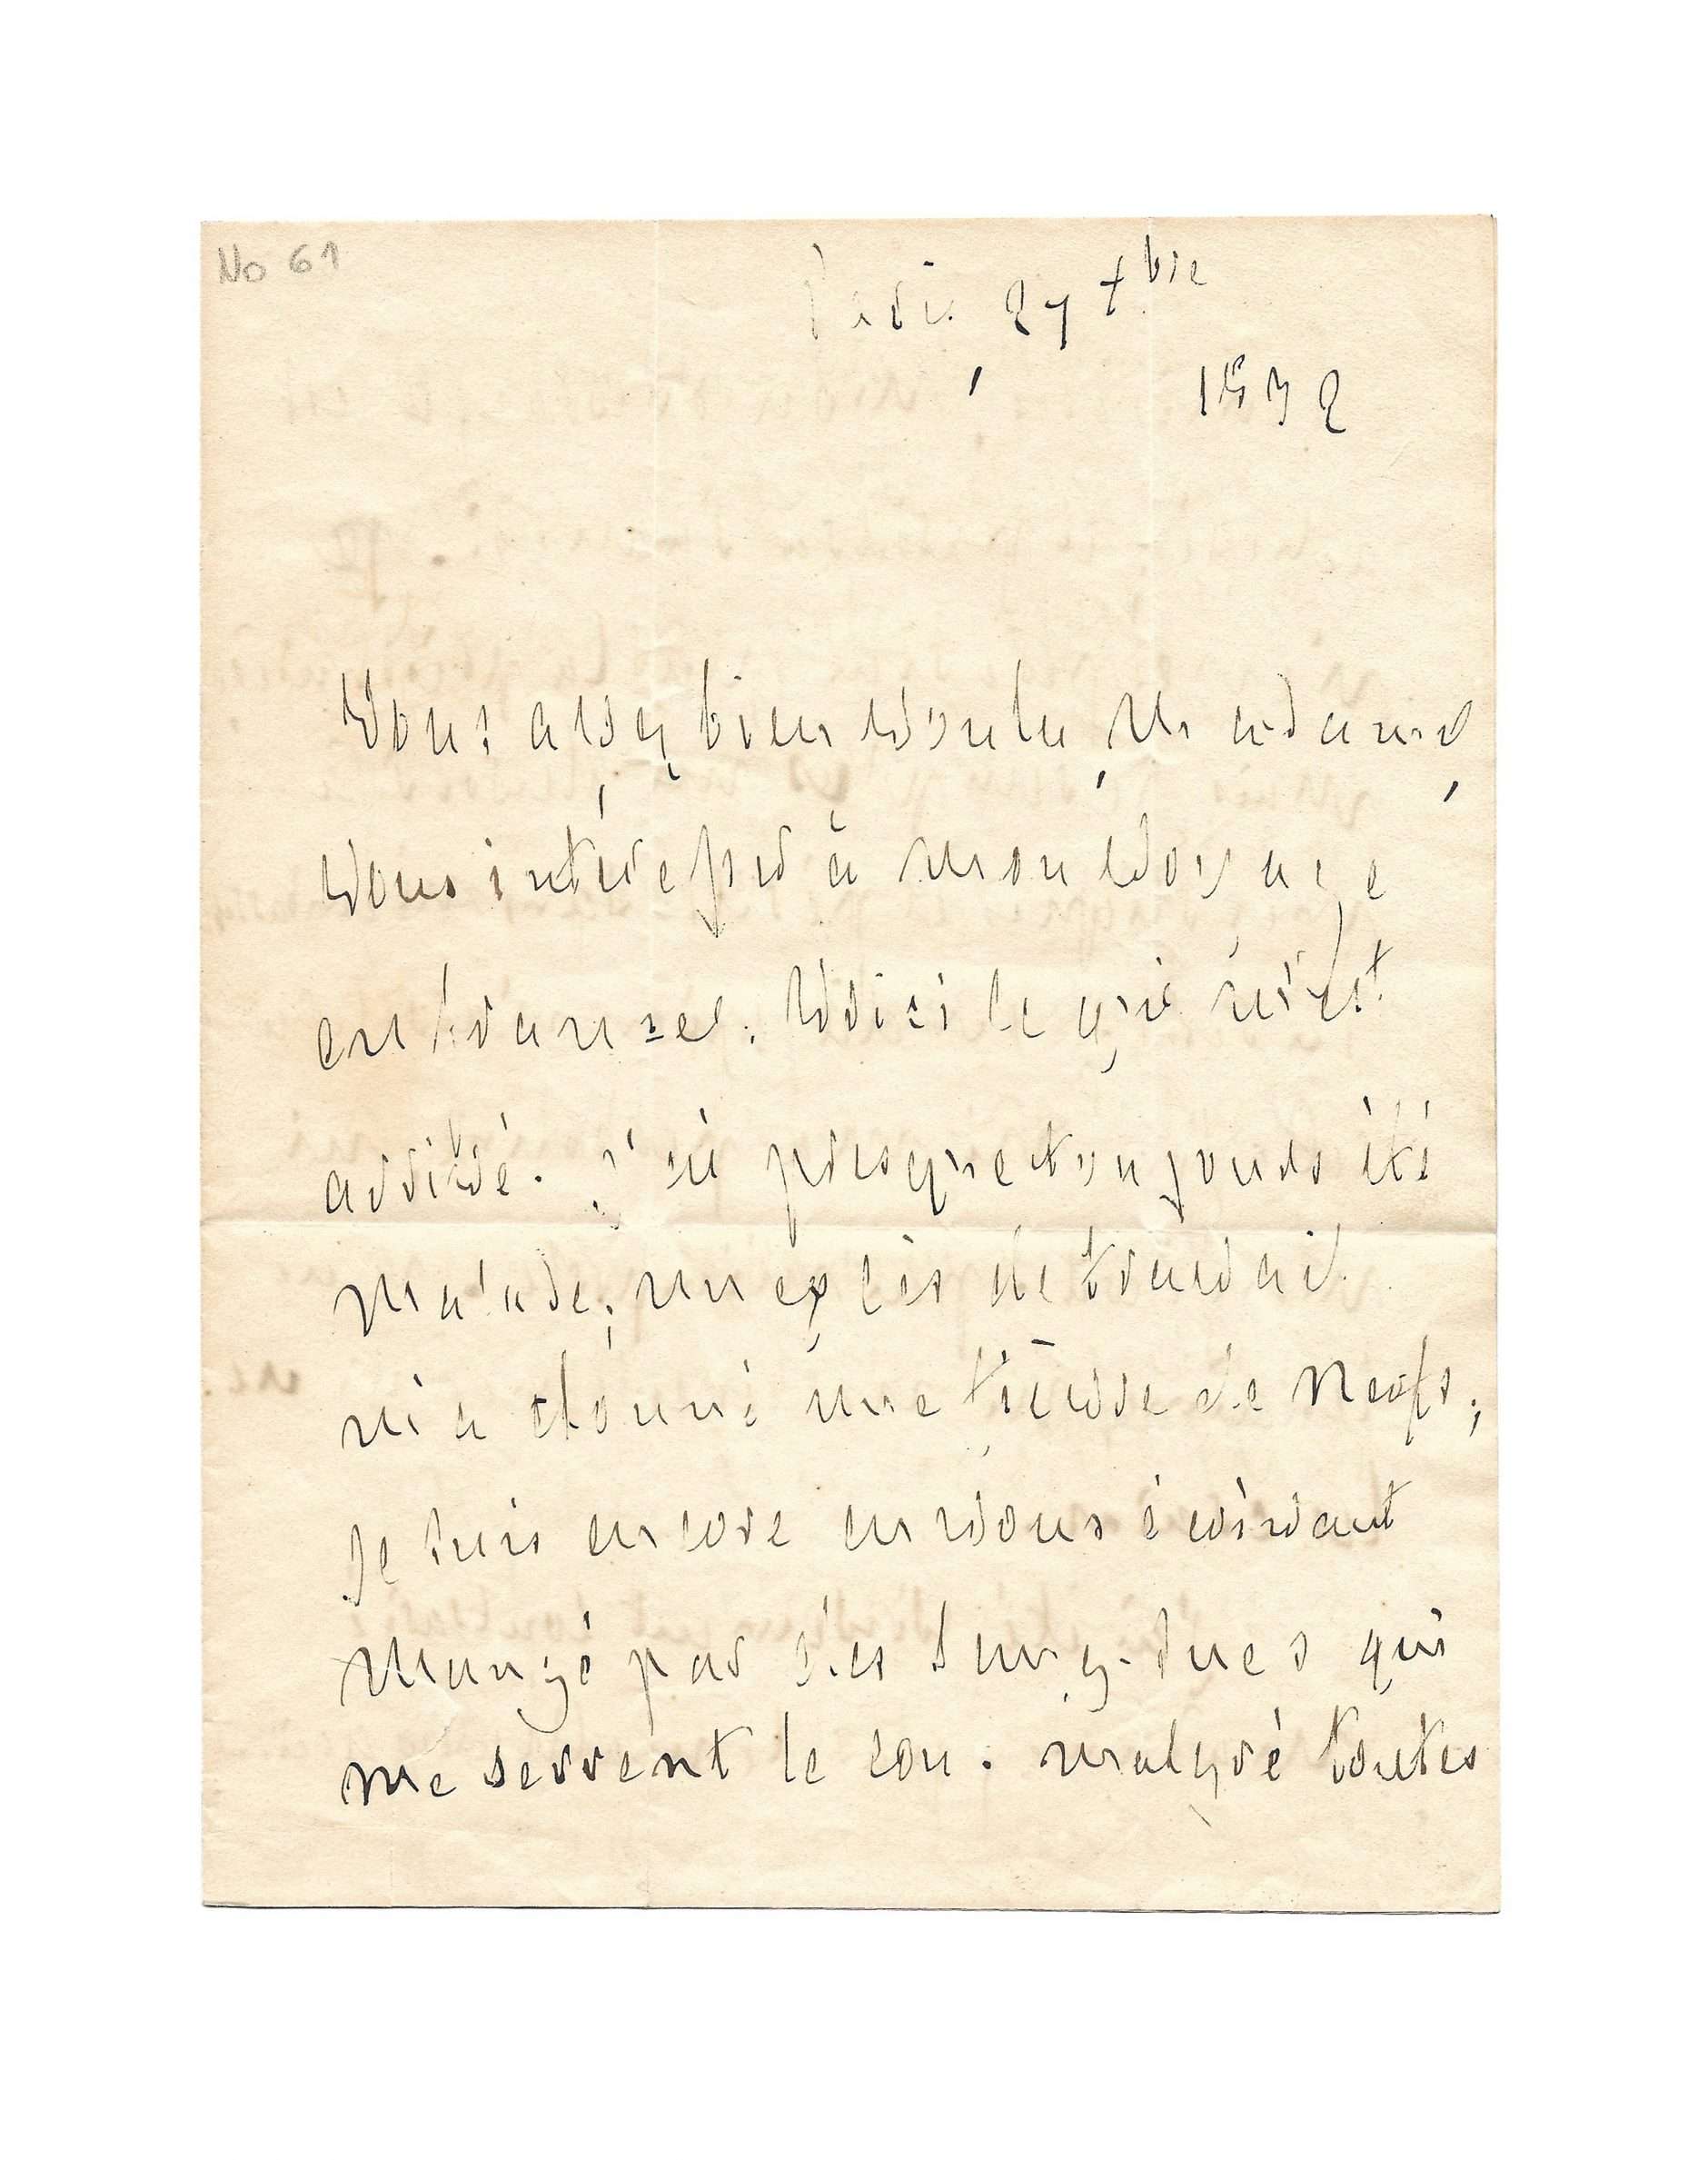 No 61
Paris, 27 xbre
1832
Vous avez bien voulu, Madame,
vous intéresser à mon voyage
en France. Voici ce qui m'est
arrivé. j'ai presque toujours été
malade; un excès de travail
m'a donné une fièvre de nerfs;
je suis encore en vous écrivant
mangé par des sangsues qui
me serrent le cou. malgré toutes